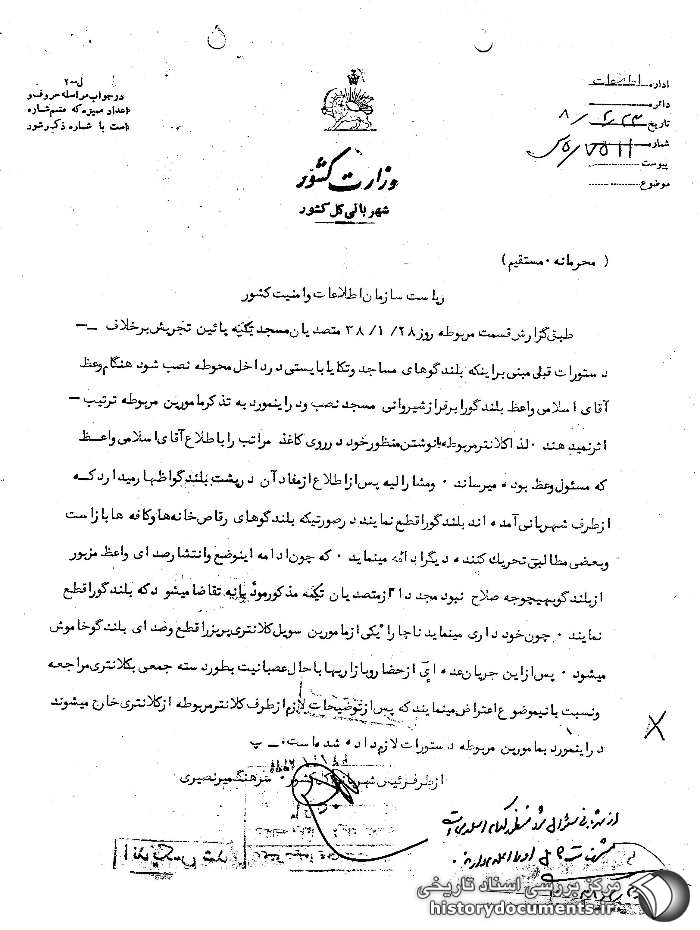 اداره اطلاعات
دائره
تاریخ ۸/۲/۲۳
شماره
پیوست
موضوع
در جواب مراسله حروف و
اعداد ممیزه که متمم شماره
است با شماره ذکر شود
وزارت کشور
شهربانی کل کشور
( محرمانه ۰ مستقیم )
ریاست سازمان اطلاعات و امنیت کشور
طبق گزارش قسمت مربوطه روز ۲۸/ ۱/ ۳۸ متصدیان مسجد تکیه پائین تجریش برخلاف
دستورات قبلی مبنی براینکه بلندگوهای مساجد وتکایا بایستی در داخل محوطه نصب شود هنگام وعظ
آقای اسلامی واعظ بلندگو را برفراز شیروانی مسجد نصب ودراینمورد به تذکر مامورین مربوطه ترتیب
اثر نمیدهند ۰ لذا کلانتر مربوطه با نوشتن منظور خود در روی کاغذ مراتب را باطلاع آقای اسلامی واعظ
که مسئول وعظ بوده میرساند ۰ ومشارالیه پس از اطلاع از مفاد آن در پشت بلندگو اظهار میدارد که
از طرف شهربانی آمده اند بلندگو را قطع نمایند در صورتیکه بلندگوهای رقاص خانه ها وکافه ها باز است
وبعضی مطالب تحریک کننده دیگر ادا ئه مینماید ۰ که چون ادامه اینوضع وانتشار صدای واعظ مزبور
از بلندگو بهیچوجه صلاح نبود مجددا از متصدیان تکیه مذکور مودبانه تقاضا میشود که بلندگو را قطع
نمایند ۰ چون خودداری مینمایند ناچارا یکی از مامورین سویل کلانتری پریز را قطع وصدای بلندگو خاموش
میشود ۰ پس از این جریان عده ای از حضار وبازاریها با حال عصبانیت بطور دسته جمعی بکلانتری مراجعه
ونسبت باینموضوع اعتراض مینمایند که پس از توضیحات لازم از طرف کلانتر مربوطه از کلانتری خارج میشوند
دراینمورد بمامورین مربوطه دستورات لازم داده شده است ۰ پ
از طرف رئیس شهربانی کل کشور ۰ سرهنگ میرنصیری
مرکز بررسی اسناد تاریخی
historydocuments.ir